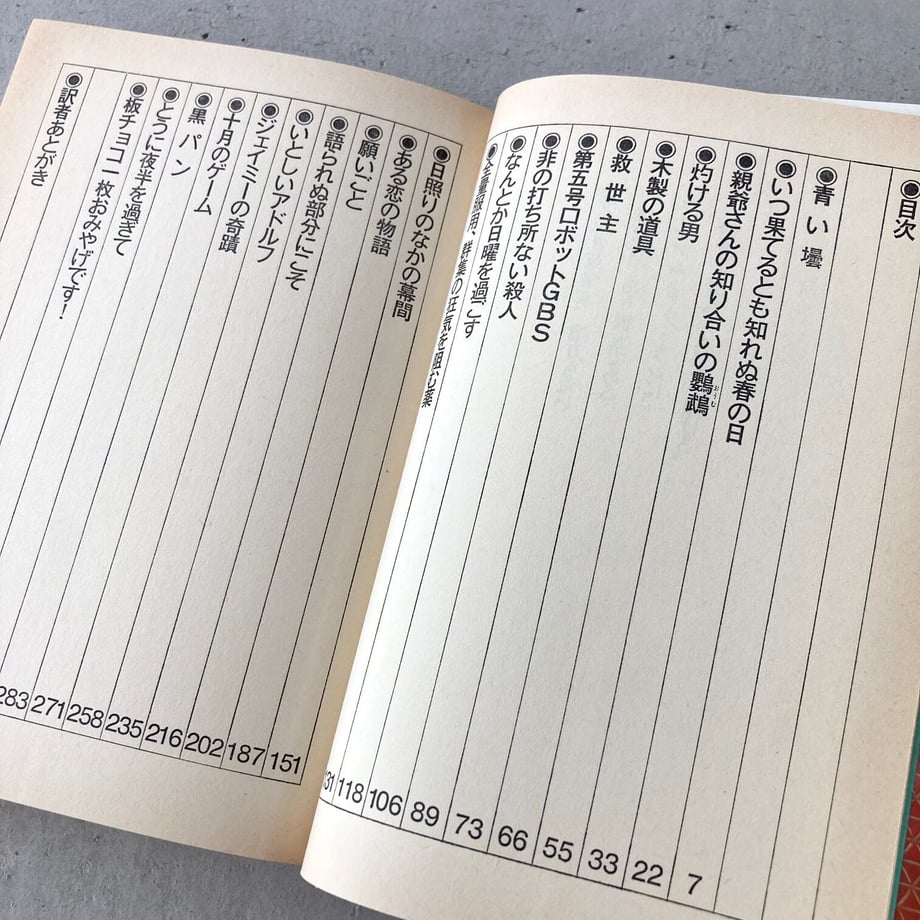 ●目次
●青い壜 7
●いつ果てるとも知れぬ春の日 22
●親爺さんの知り合いの鸚鵡 33
おうむ
●灼ける男 55
●木製の道具 66
●救世主 73
●第五号ロボットGBS 89
●非の打ち所ない殺人 106
●なんとか日曜を過ごす 118
群集の狂気を阻む薬 31
●日照りのなかの幕間 151
●ある恋の物語 187
●願いごと 202
●語られぬ部分にこそ 216
●いとしいアドルフ 235
●ジェイミーの奇蹟 258
●十月のゲーム 271
●黒パン 283
●とうに夜半を過ぎて
●板チョコ一枚おみやげです！
●訳者あとがき